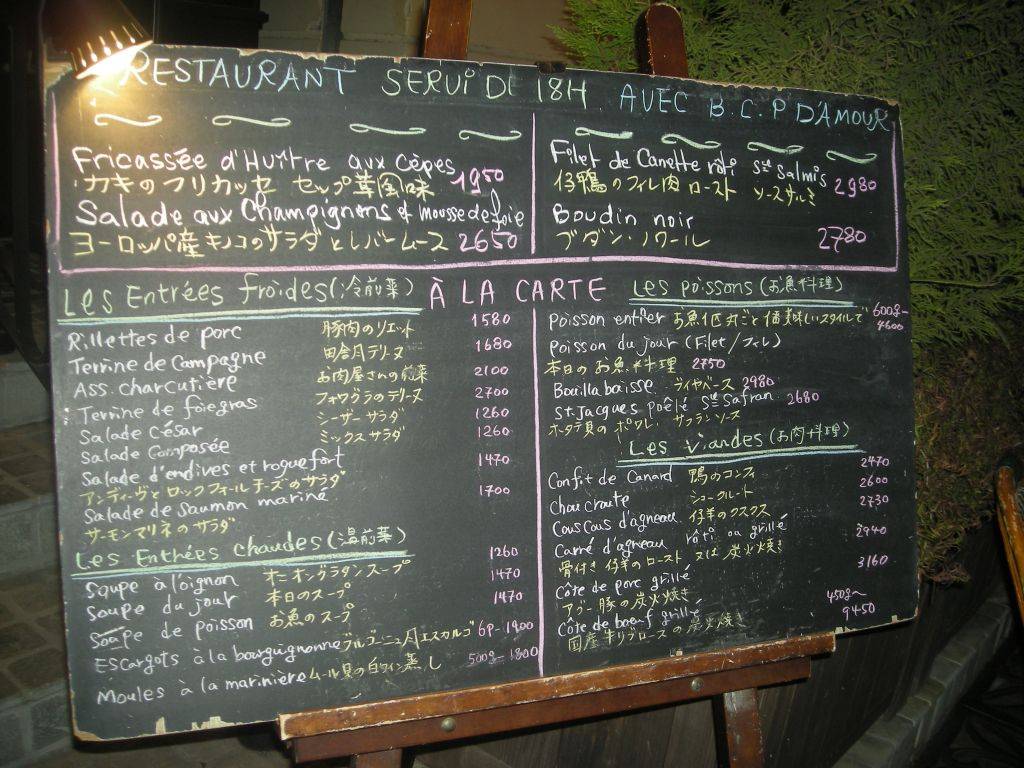 RESTAURANT SERVI DE 18H AVEC B.C.P D'AMOUR
Fricassée d'Huître aux Cèpes
カキのフリカッセ セップ茸風味 1950
Salade aux Champignons et mousse de foie
ヨーロッパ産キノコのサラダとレバームース 2650
Filet de Canette rôti Sce Salmis
仔鴨のフィレ肉 ロースト ソースサルミ 2980
Boudin noir
ブダン・ノワール 2780
À LA CARTE
Les Entrées froides (冷前菜)
Rillettes de porc 豚肉のリエット 1580
Terrine de Campagne 田舎風テリーヌ 1680
Ass. charcutière お肉屋さんの前菜 2100
Terrine de foie gras フォワグラのテリーヌ 2700
Salade César シーザーサラダ 1260
Salade Composée ミックスサラダ 1260
Salade d'endives et roquefort 1470
アンディーヴとロックフォールチーズのサラダ
Salade de saumon mariné 1700
サーモンマリネのサラダ
Les Entrées chaudes (温前菜)
Soupe à l'oignon オニオングラタンスープ 1260
Soupe du jour 本日のスープ 1470
Soupe de poisson お魚のスープ 1470
Escargots à la bourguignonne ブルゴーニュ風エスカルゴ 6P-1900
Moules à la marinière ムール貝の白ワイン蒸し 500g-1800
Les poissons (お魚料理)
Poisson entier お魚1匹丸ごと スタイルで 600g~
4600
Poisson du jour (Filet/フィレ)
本日のお魚料理 2750
Bouillabaisse ブイヤベース 2980
St. Jacques poêlé Sce Safran 2680
ホタテ貝のポワレ サフランソース
Les Viandes (お肉料理)
Confit de Canard 鴨のコンフィ 2470
Choucroute シュークルート 2600
Couscous d'agneau 仔羊のクスクス 2730
Carré d'agneau rôti ou grillé 2940
骨付き仔羊のロースト 又は 炭火焼き
Côte de porc grillé 3160
アグー豚の炭火焼き
Côte de bœuf grillé 450g~
9450
国産牛リブロースの炭火焼き